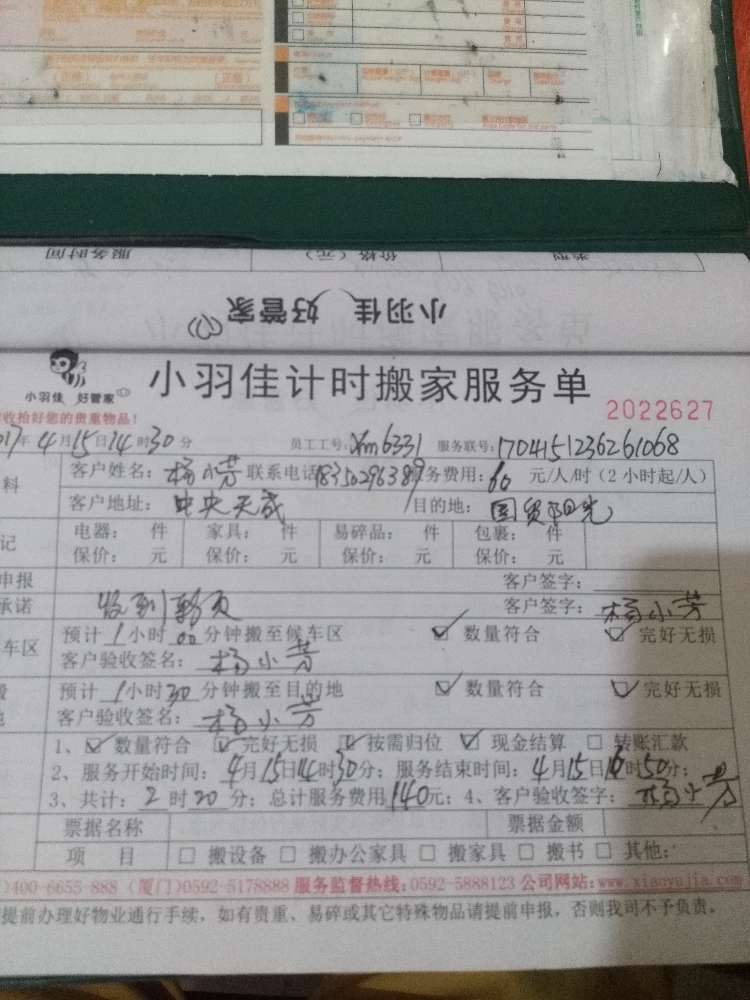 服务时间 价格（元） 类型
小羽佳 好管家
小羽佳 好管家
小羽佳计时搬家服务单
2022627
收拾好您的贵重物品！
017年4月15日14时30分 员工工号：Xm6331 服务联号：1704151236261068
料 客户姓名：杨小芳 联系电话 18350296389 服务费用：60 元/人/时（2小时起/人）
客户地址：中央天成 目的地：国贸阳光
记 电器： 件 家具： 件 易碎品： 件 包裹： 件
保价： 元 保价： 元 保价： 元 保价： 元
申报 客户签字：
承诺 收到 客户签字：杨小芳
车区 预计1小时00分钟搬至候车区 ☑ 数量符合 ☑ 完好无损
客户验收签名：杨小芳
预计1小时30分钟搬至目的地 ☑ 数量符合 ☑ 完好无损
客户验收签名：杨小芳
1、☑ 数量符合 ☑ 完好无损 ☑ 按需归位 ☑ 现金结算 □ 转账汇款
2、服务开始时间：4月15日14时30分；服务结束时间：4月15日16时50分；
3、共计：2时20分；总计服务费用140元；4、客户验收签字：杨小芳
票据名称 票据金额
项 目 □ 搬设备 □ 搬办公家具 □ 搬家具 □ 搬书 □ 其他：
)400-6655-888（厦门)0592-5178888 服务监督热线：0592-5888123 公司网站：www.xiaoyujia.com
提前办理好物业通行手续，如有贵重、易碎或其它特殊物品请提前申报，否则我司不予负责。